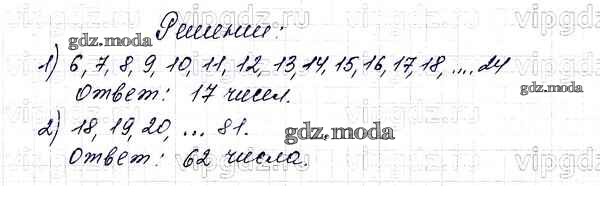 Решение:
1) 6, 7, 8, 9, 10, 11, 12, 13, 14, 15, 16, 17, 18, .... 24
Ответ: 17 чисел.
2) 18, 19, 20, ... 81.
Ответ: 62 числа.
gdz.moda
gdz.moda
gdz.moda
gdz.moda
vipgdz